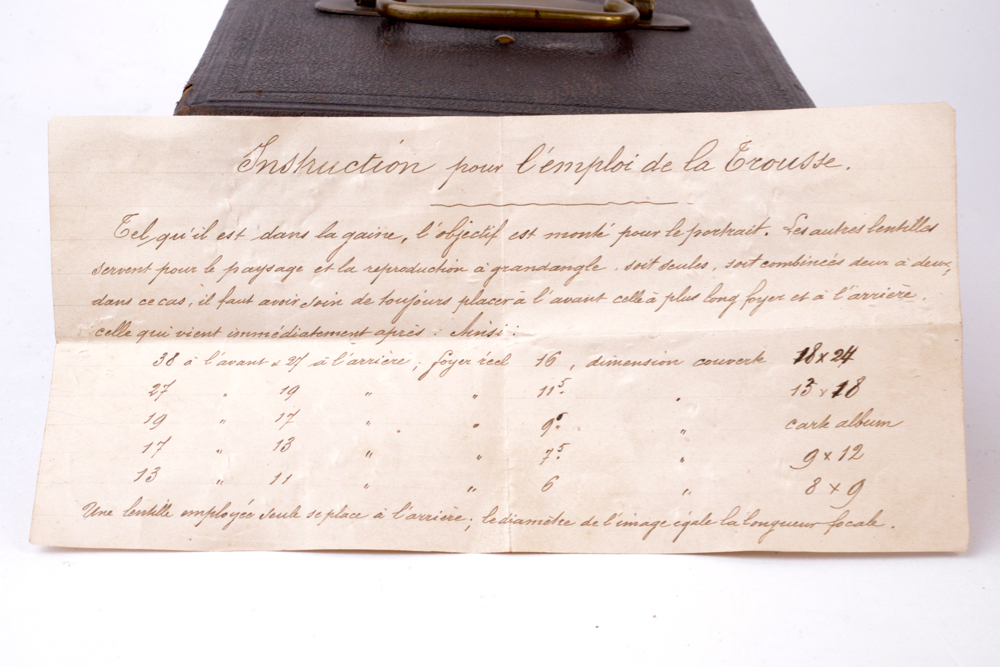 Instruction pour l'emploi de la Trousse.
Tel, qu'il est dans la gaine, l'objectif est monté pour le portrait. Les autres lentilles
servent pour le paysage et la reproduction à grand angle. soit seules, soit combinées deux à deux,
dans ce cas, il faut avoir soin de toujours placer à l'avant celle à plus long foyer et à l'arrière.
celle qui vient immédiatement après: Ainsi:
38 à l'avant & 27 à l'arrière; foyer réel 16, dimension couverte 18 x 24
27 " 19 " " 11⁵. " 13 x 18
19 " 17 " " 9⁵. " carte album
17 " 13 " " 7⁵. " 9 x 12
13 " 11 " " 6 " 8 x 9
Une lentille employée seule se place à l'arrière; le diamètre de l'image égale la longueur focale.